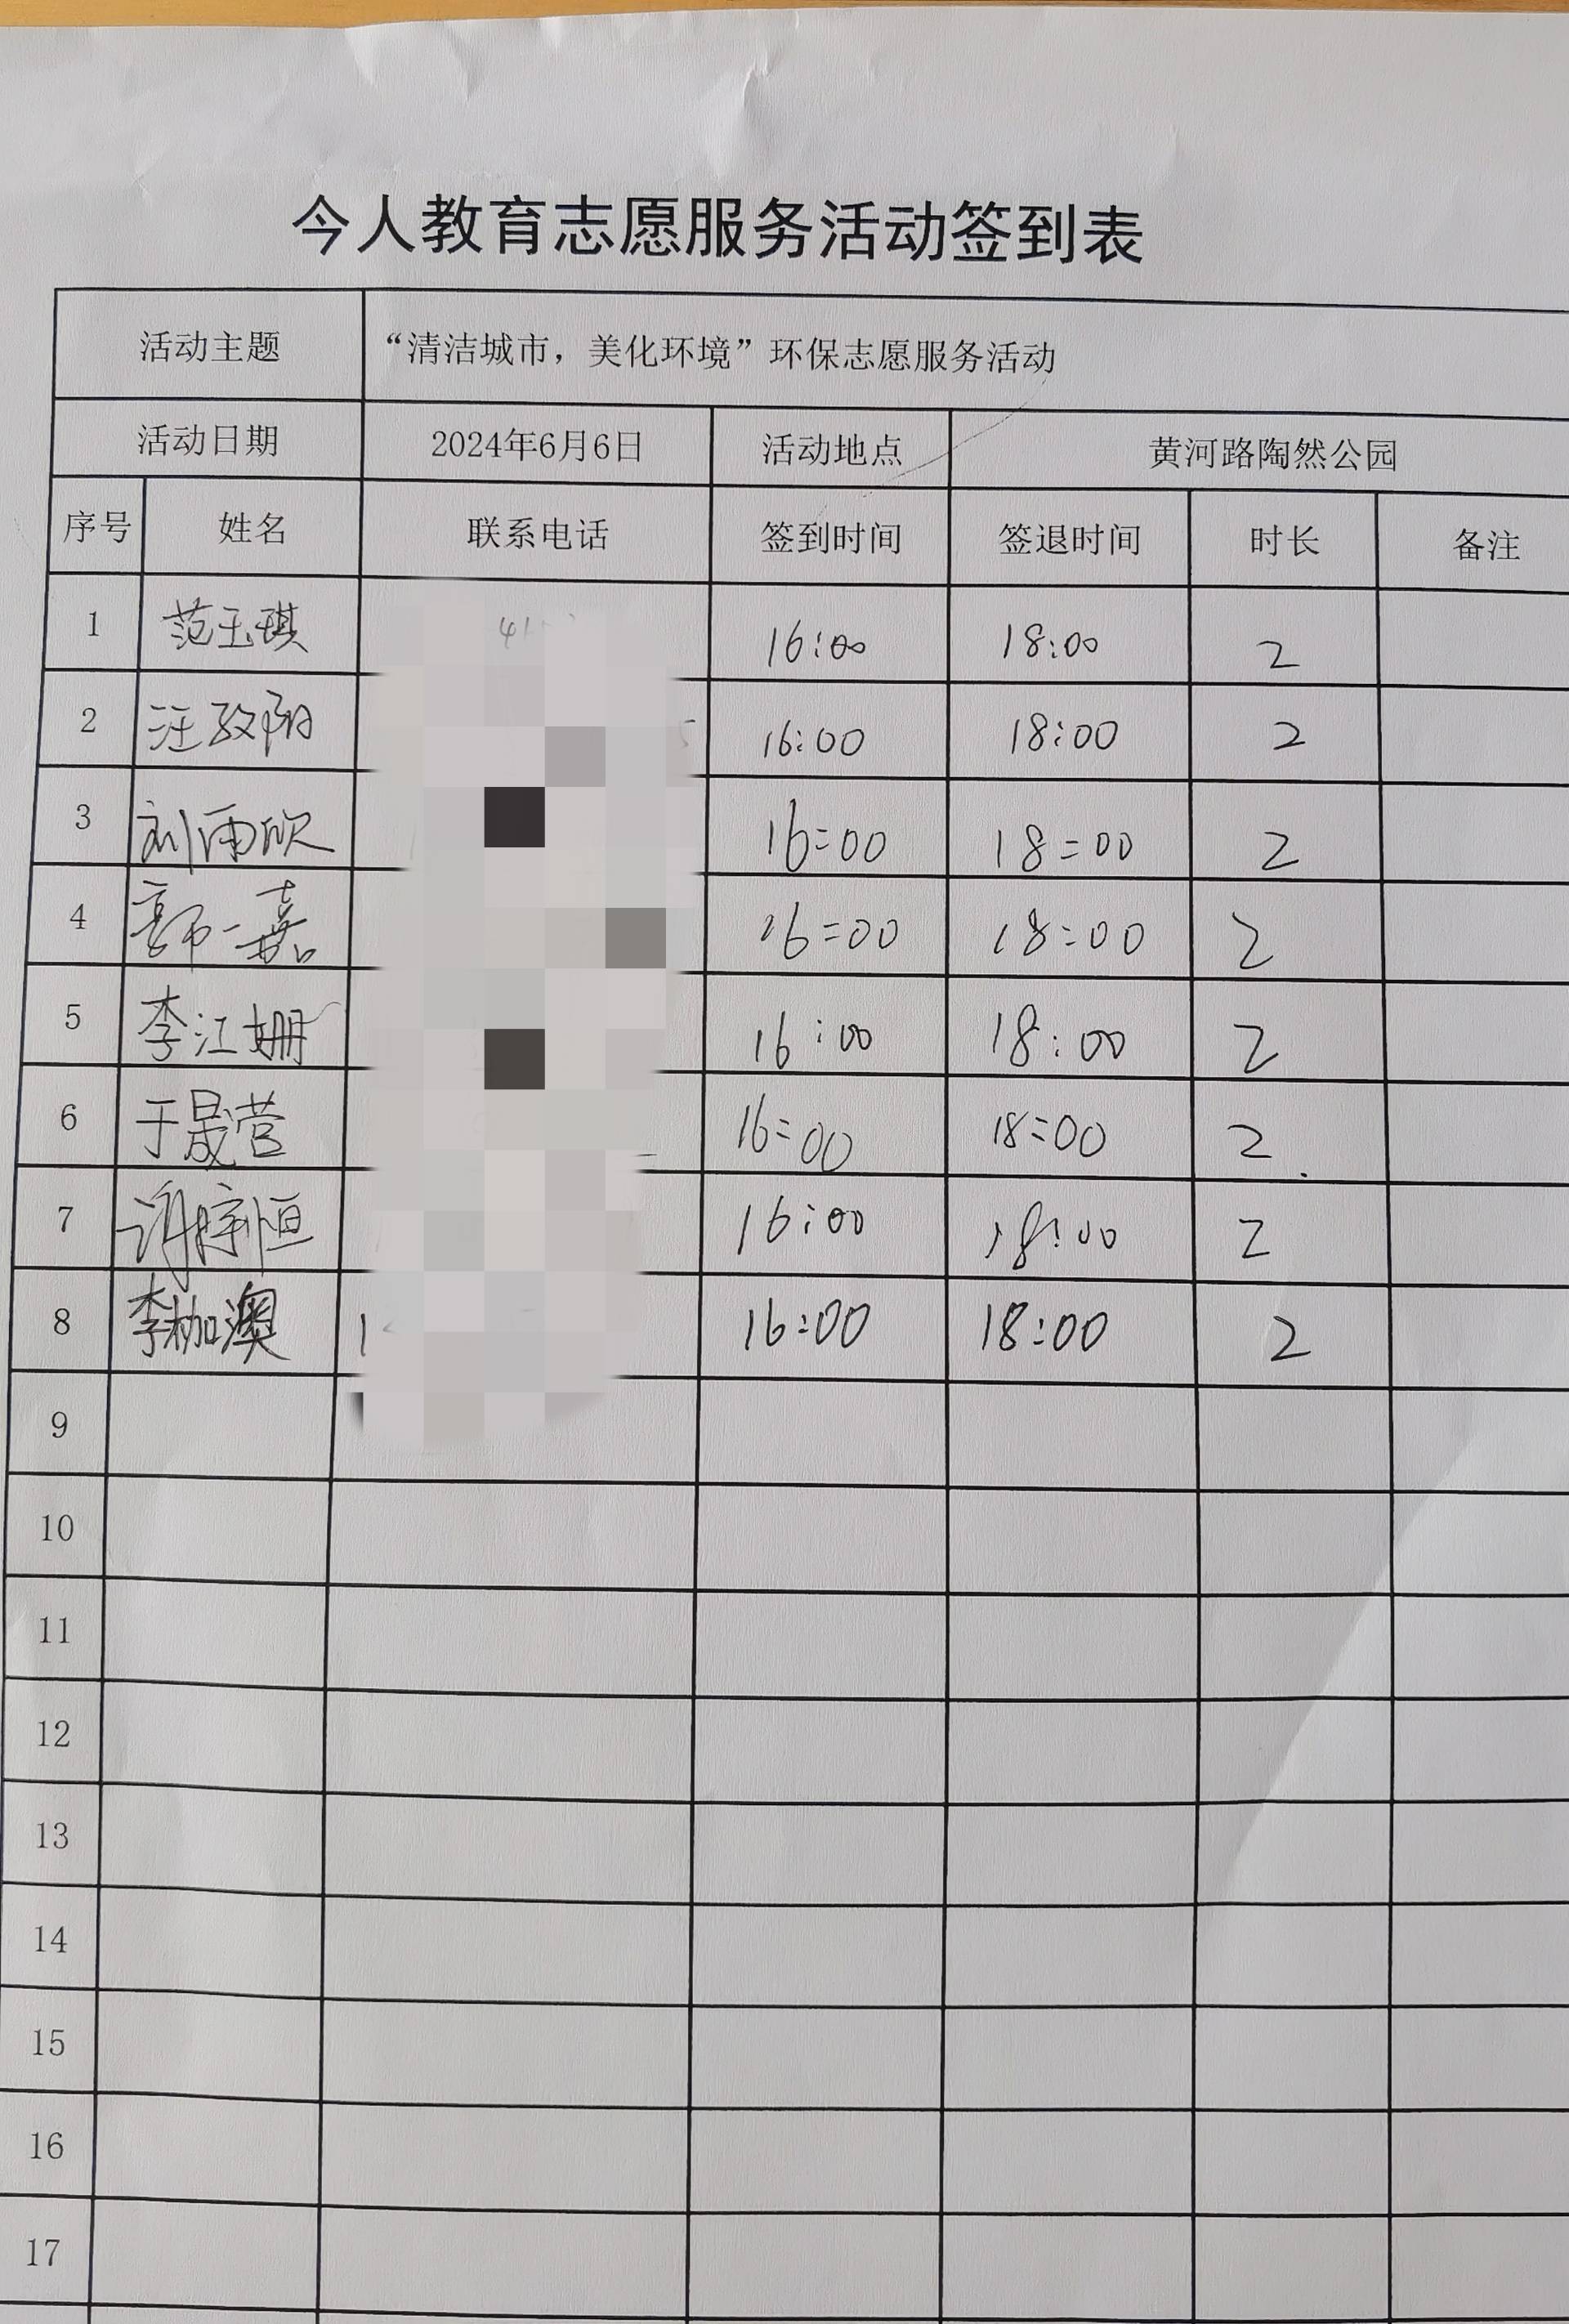 今人教育志愿服务活动签到表
活动主题 “清洁城市，美化环境”环保志愿服务活动
活动日期 2024年6月6日 活动地点 黄河路陶然公园
序号 姓名 联系电话 签到时间 签退时间 时长 备注
1 范玉琪 16:00 18:00 2
2 汪致阳 16:00 18:00 2
3 刘雨欣 16:00 18:00 2
4 郭一嘉 16:00 18:00 2
5 李江姗 16:00 18:00 2
6 于晟营 16:00 18:00 2
7 谢梓恒 16:00 18:00 2
8 李枷澳 1 16:00 18:00 2
9
10
11
12
13
14
15
16
17